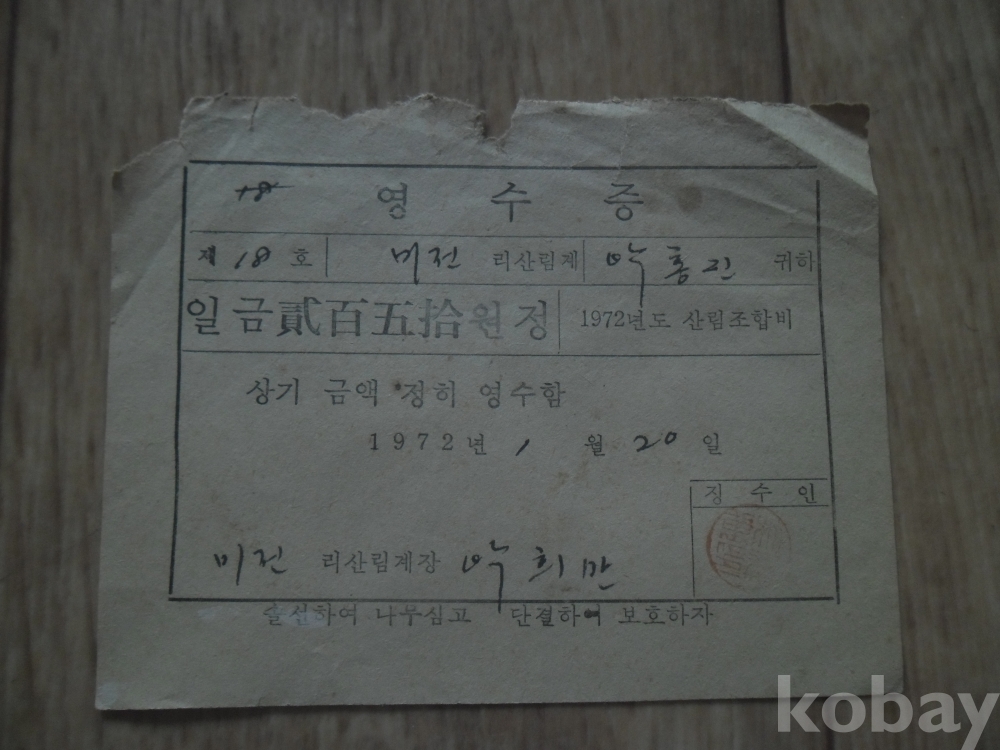 18
영 수 증
제 18 호 미전 리산림계 박홍진 귀하
일금貳百五拾원정 1972년도 산림조합비
상기 금액 정히 영수함
1972년 1 월 20 일
징 수 인
미전 리산림계장 박희만
솔선하여 나무심고 단결하여 보호하자
kobay